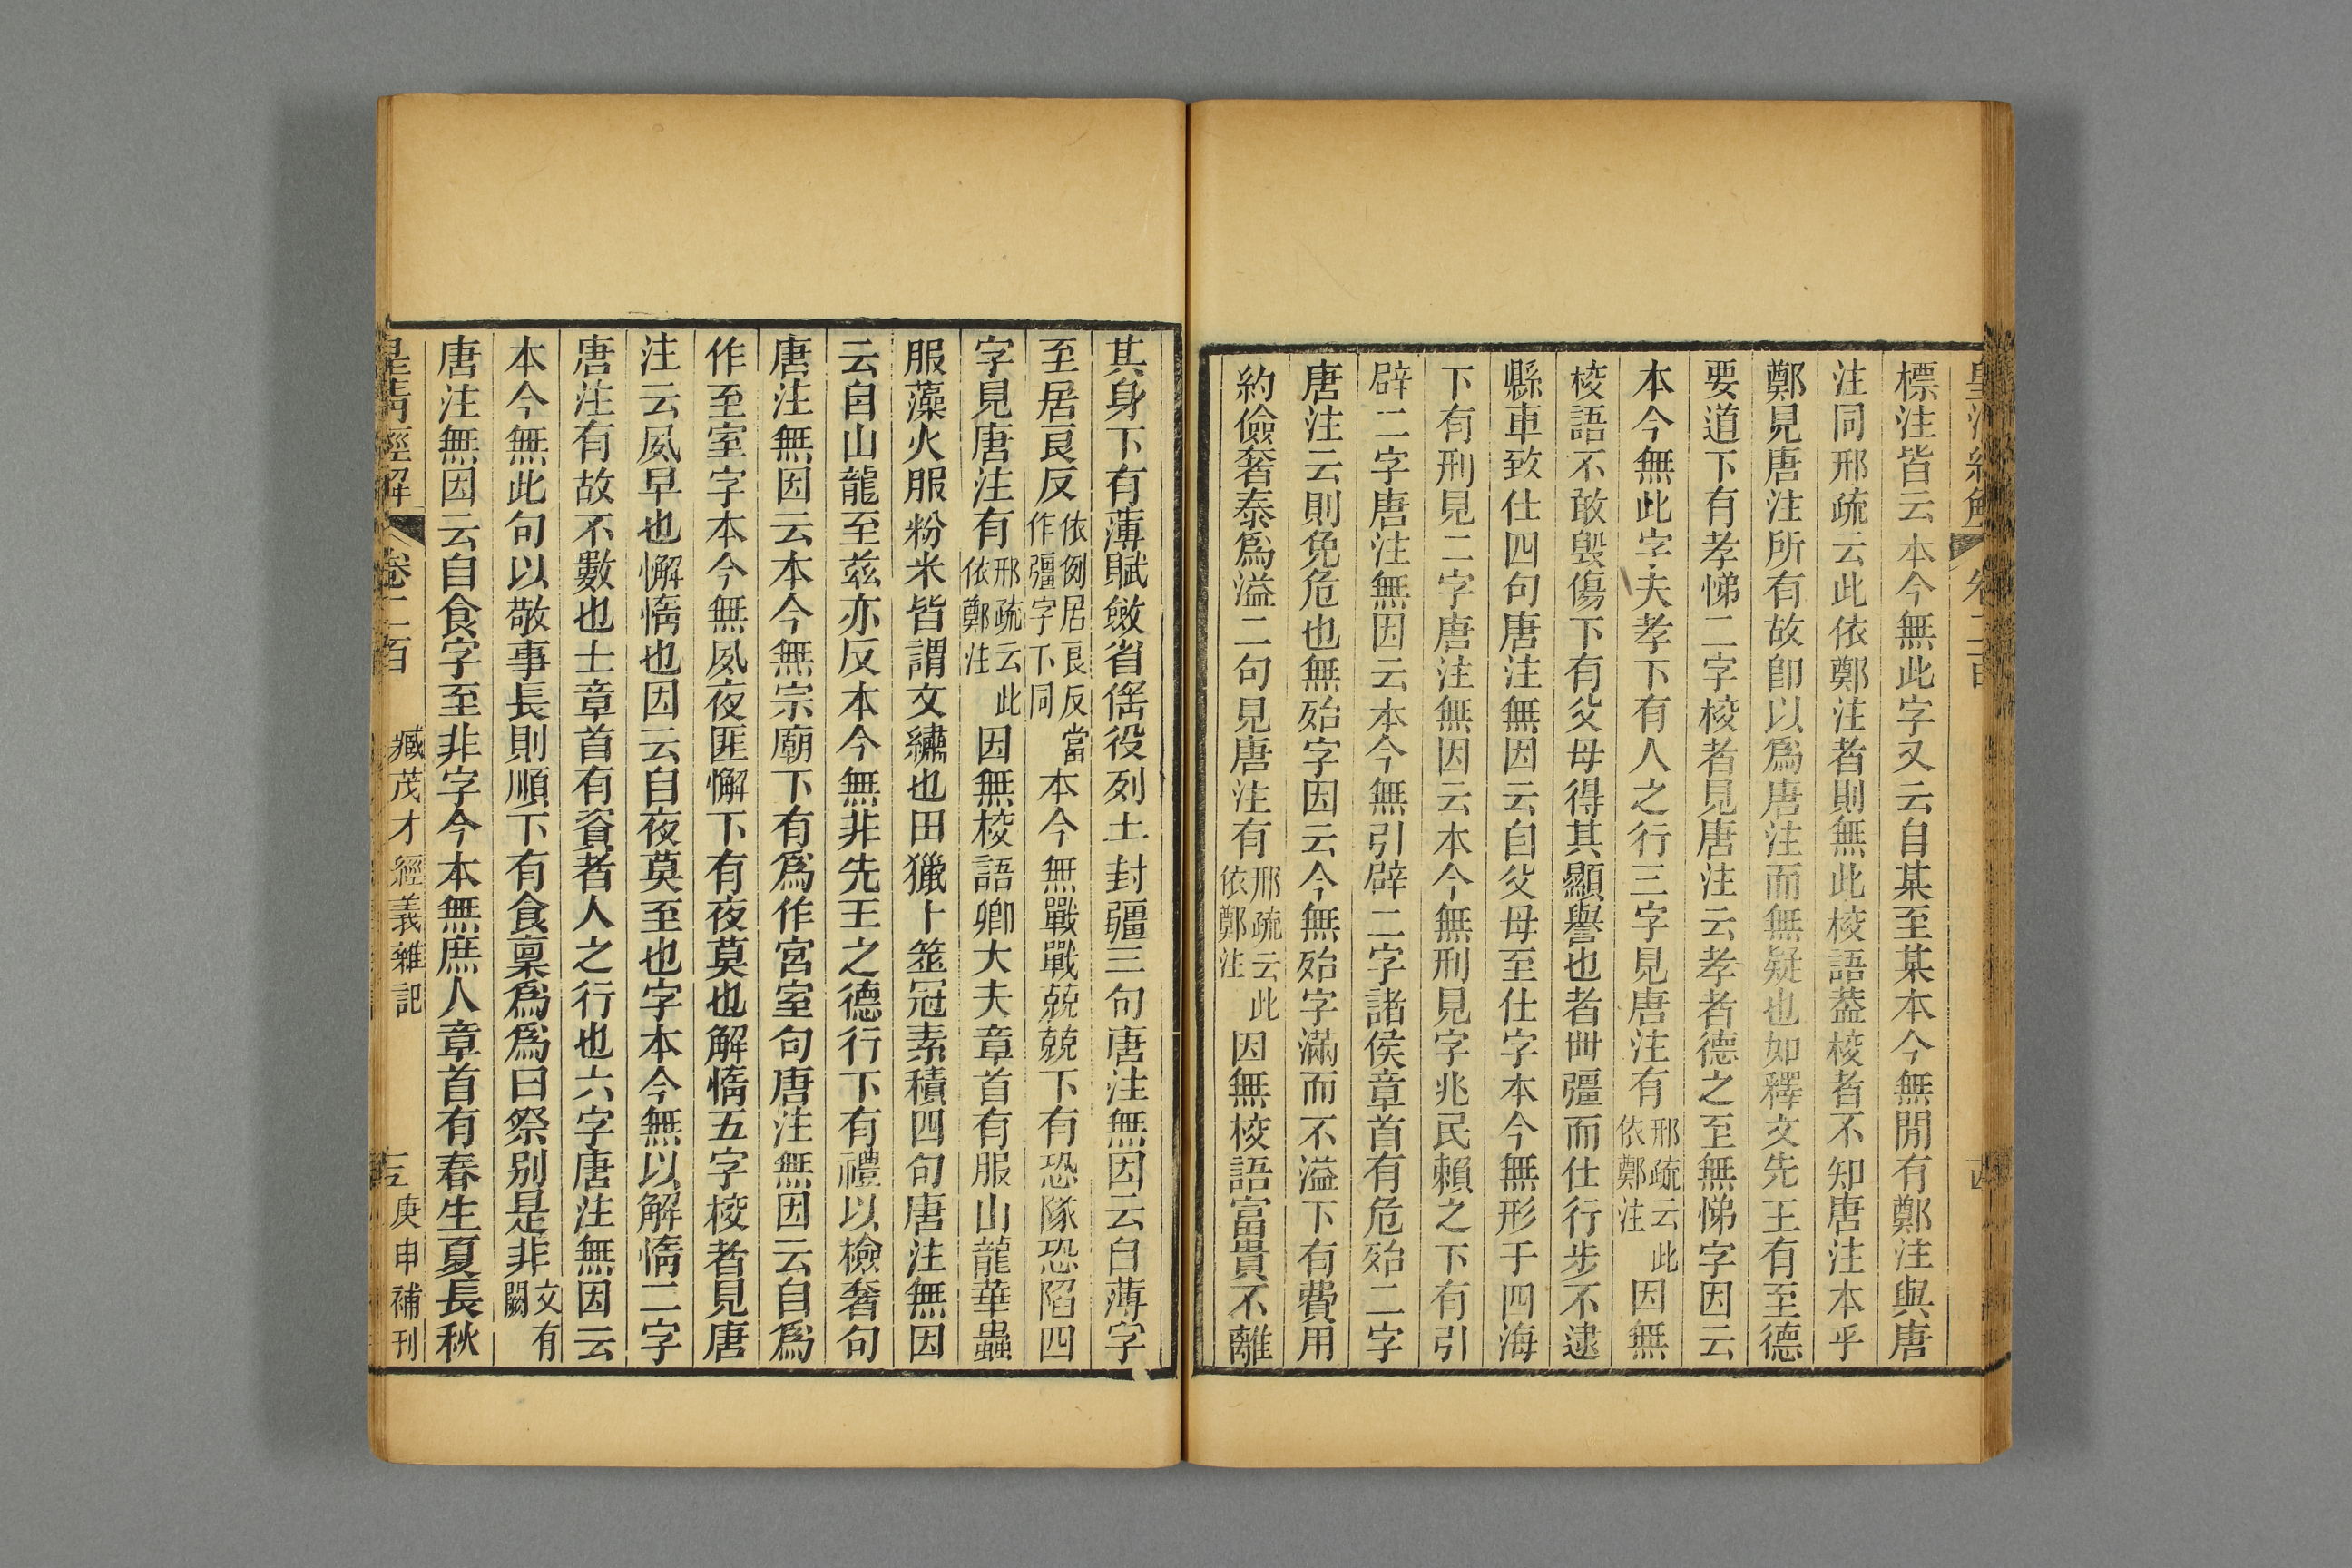 皇清經解 卷二百
標注皆云本今無此字又云自某至某本今無閒有鄭注與唐
注同邢疏云此依鄭注者則無此校語葢校者不知唐注本乎
鄭見唐注所有故卽以爲唐注而無疑也如釋文先王有至德
要道下有孝悌二字校者見唐注云孝者德之至無悌字因云
本今無此字夫孝下有人之行三字見唐注有邢疏云此依鄭注因無
校語不敢毀傷下有父母得其顯譽也者丗彊而仕行步不逮
縣車致仕四句唐注無因云自父母至仕字本今無形于四海
下有刑見二字唐注無因云本今無刑見字兆民賴之下有引
辟二字唐注無因云本今無引辟二字諸侯章首有危殆二字
唐注云則免危也無殆字因云今無殆字滿而不溢下有費用
約儉奢泰爲溢二句見唐注有邢疏云此依鄭注因無校語富貴不離
其身下有薄賦斂省傜役列土封疆三句唐注無因云自薄字
至居良反依例居良反當作彊字下同本今無戰戰兢兢下有恐隊恐陷四
字見唐注有邢疏云此依鄭注因無校語卿大夫章首有服山龍華蟲
服藻火服粉米皆謂文繡也田獵卜筮冠素積四句唐注無因
云自山龍至茲亦反本今無非先王之德行下有禮以檢奢句
唐注無因云本今無宗廟下有爲作宮室句唐注無因云自爲
作至室字本今無夙夜匪懈下有夜莫也解惰五字校者見唐
注云夙早也懈惰也因云自夜莫至也字本今無以解惰二字
唐注有故不數也士章首有資者人之行也六字唐注無因云
本今無此句以敬事長則順下有食稟爲爲曰祭别是非文有闕
唐注無因云自食字至非字今本無庶人章首有春生夏長秋
皇清經解 卷二百 臧茂才經義雜記 庚申補刊